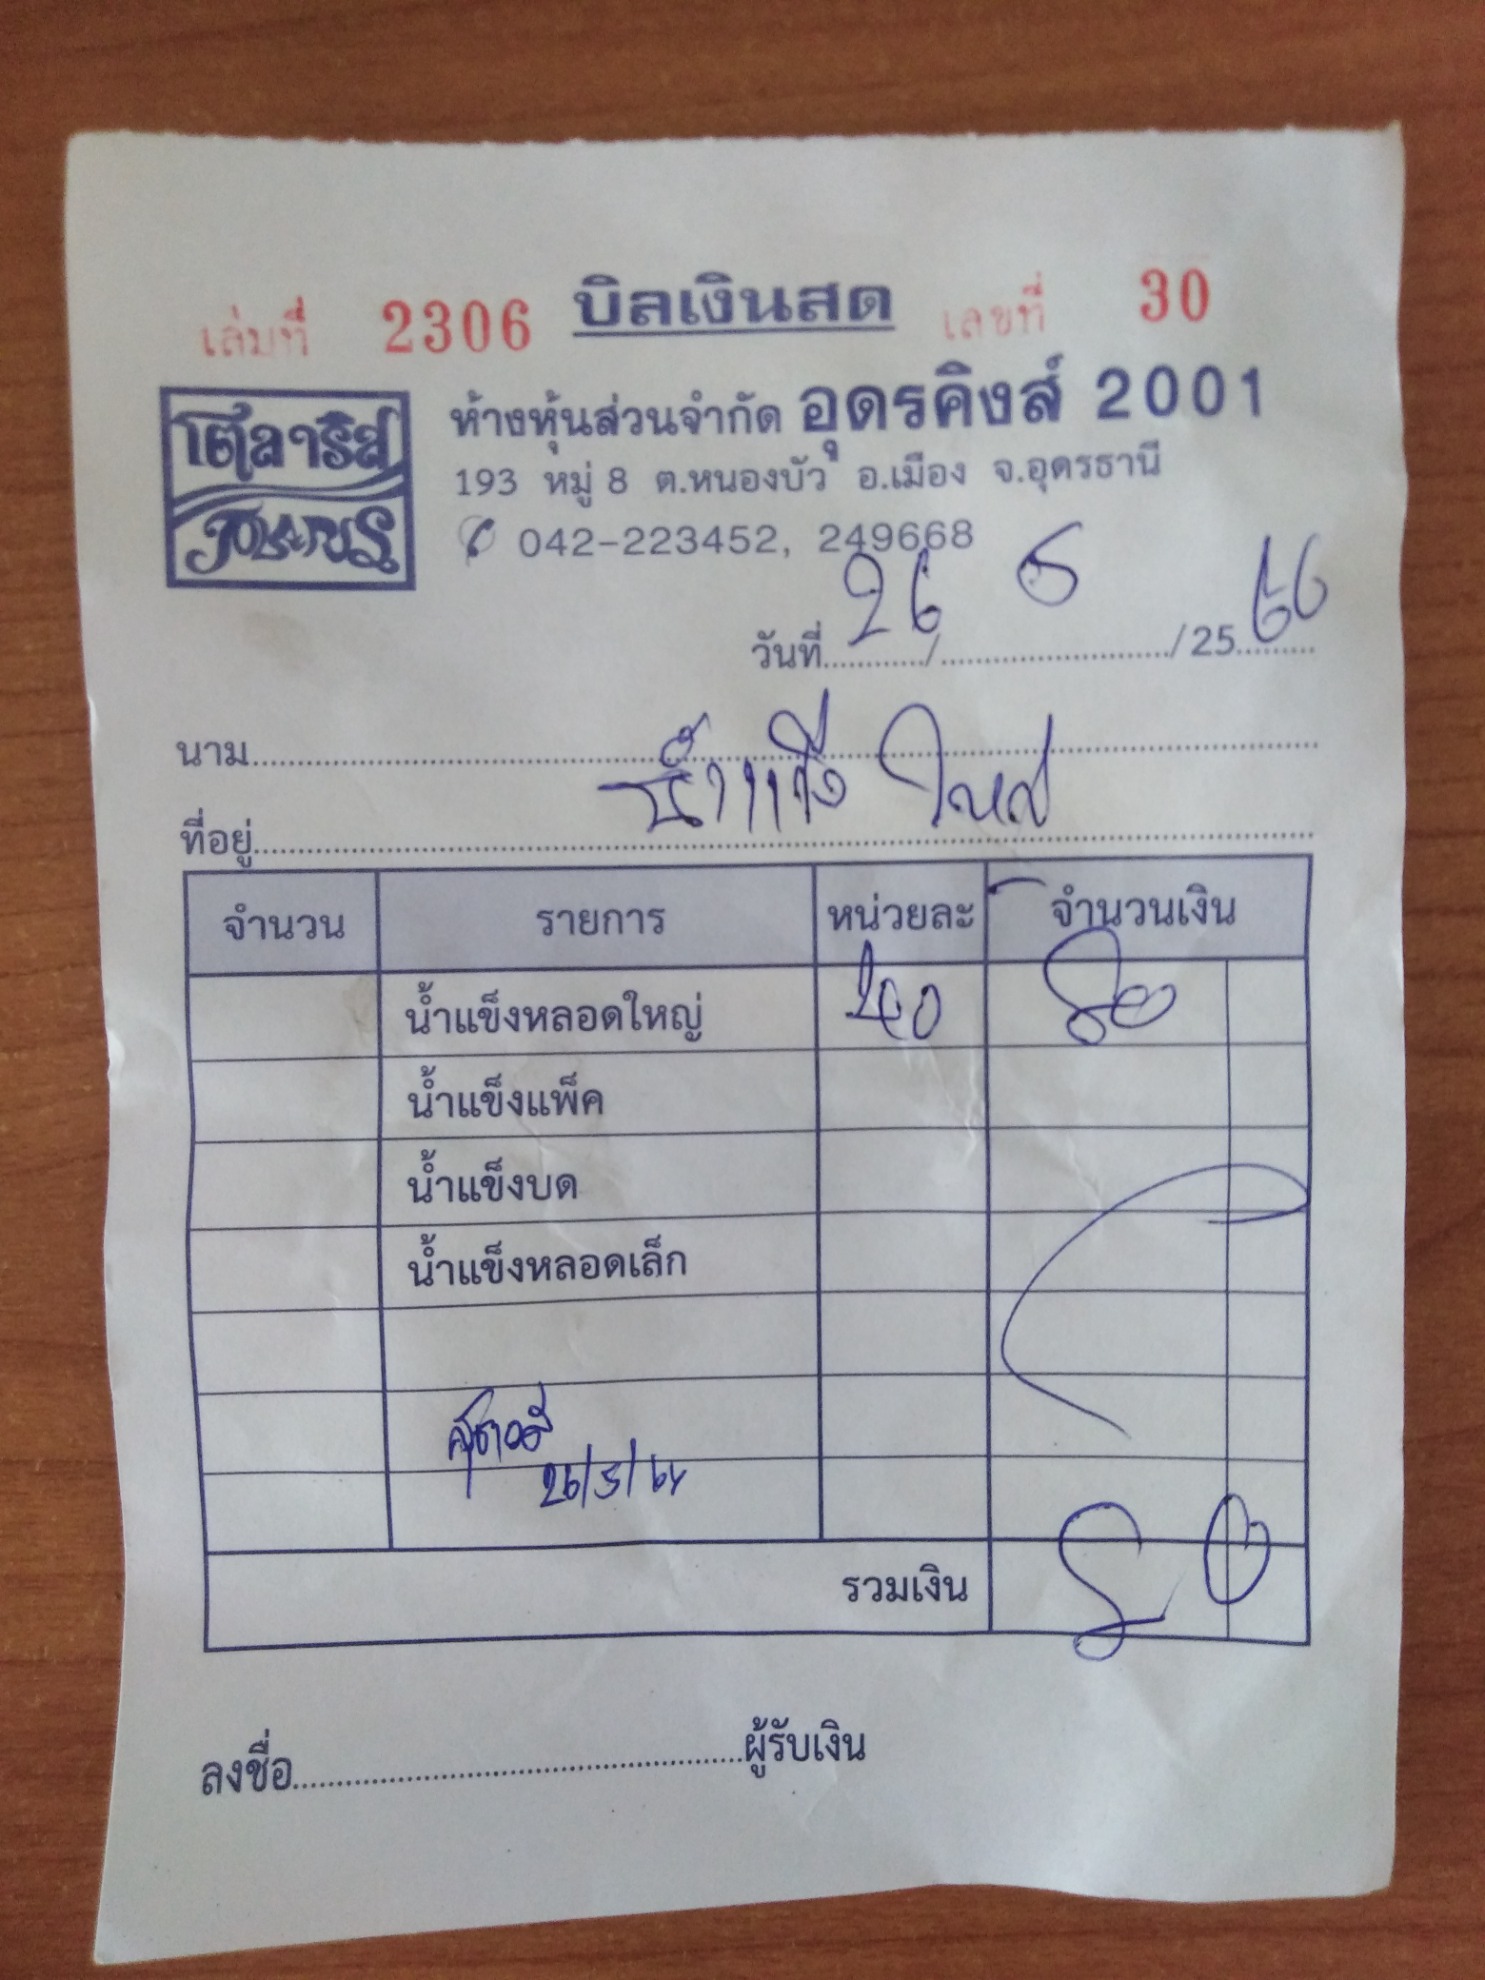 เล่มที่ 2306 บิลเงินสด เลขที่ 30
โพลาริส
POLARIS
ห้างหุ้นส่วนจำกัด อุดรคิงส์ 2001
193 หมู่ 8 ต.หนองบัว อ.เมือง จ.อุดรธานี
042-223452, 249668
วันที่ 26 / 5 / 25
นาม
น้ำแข็งใหส
ที่อยู่
จำนวน รายการ หน่วยละ จำนวนเงิน
น้ำแข็งหลอดใหญ่ 80
น้ำแข็งแพ็ค
น้ำแข็งบด
น้ำแข็งหลอดเล็ก
26/5/64
รวมเงิน 80
ลงชื่อ ผู้รับเงิน